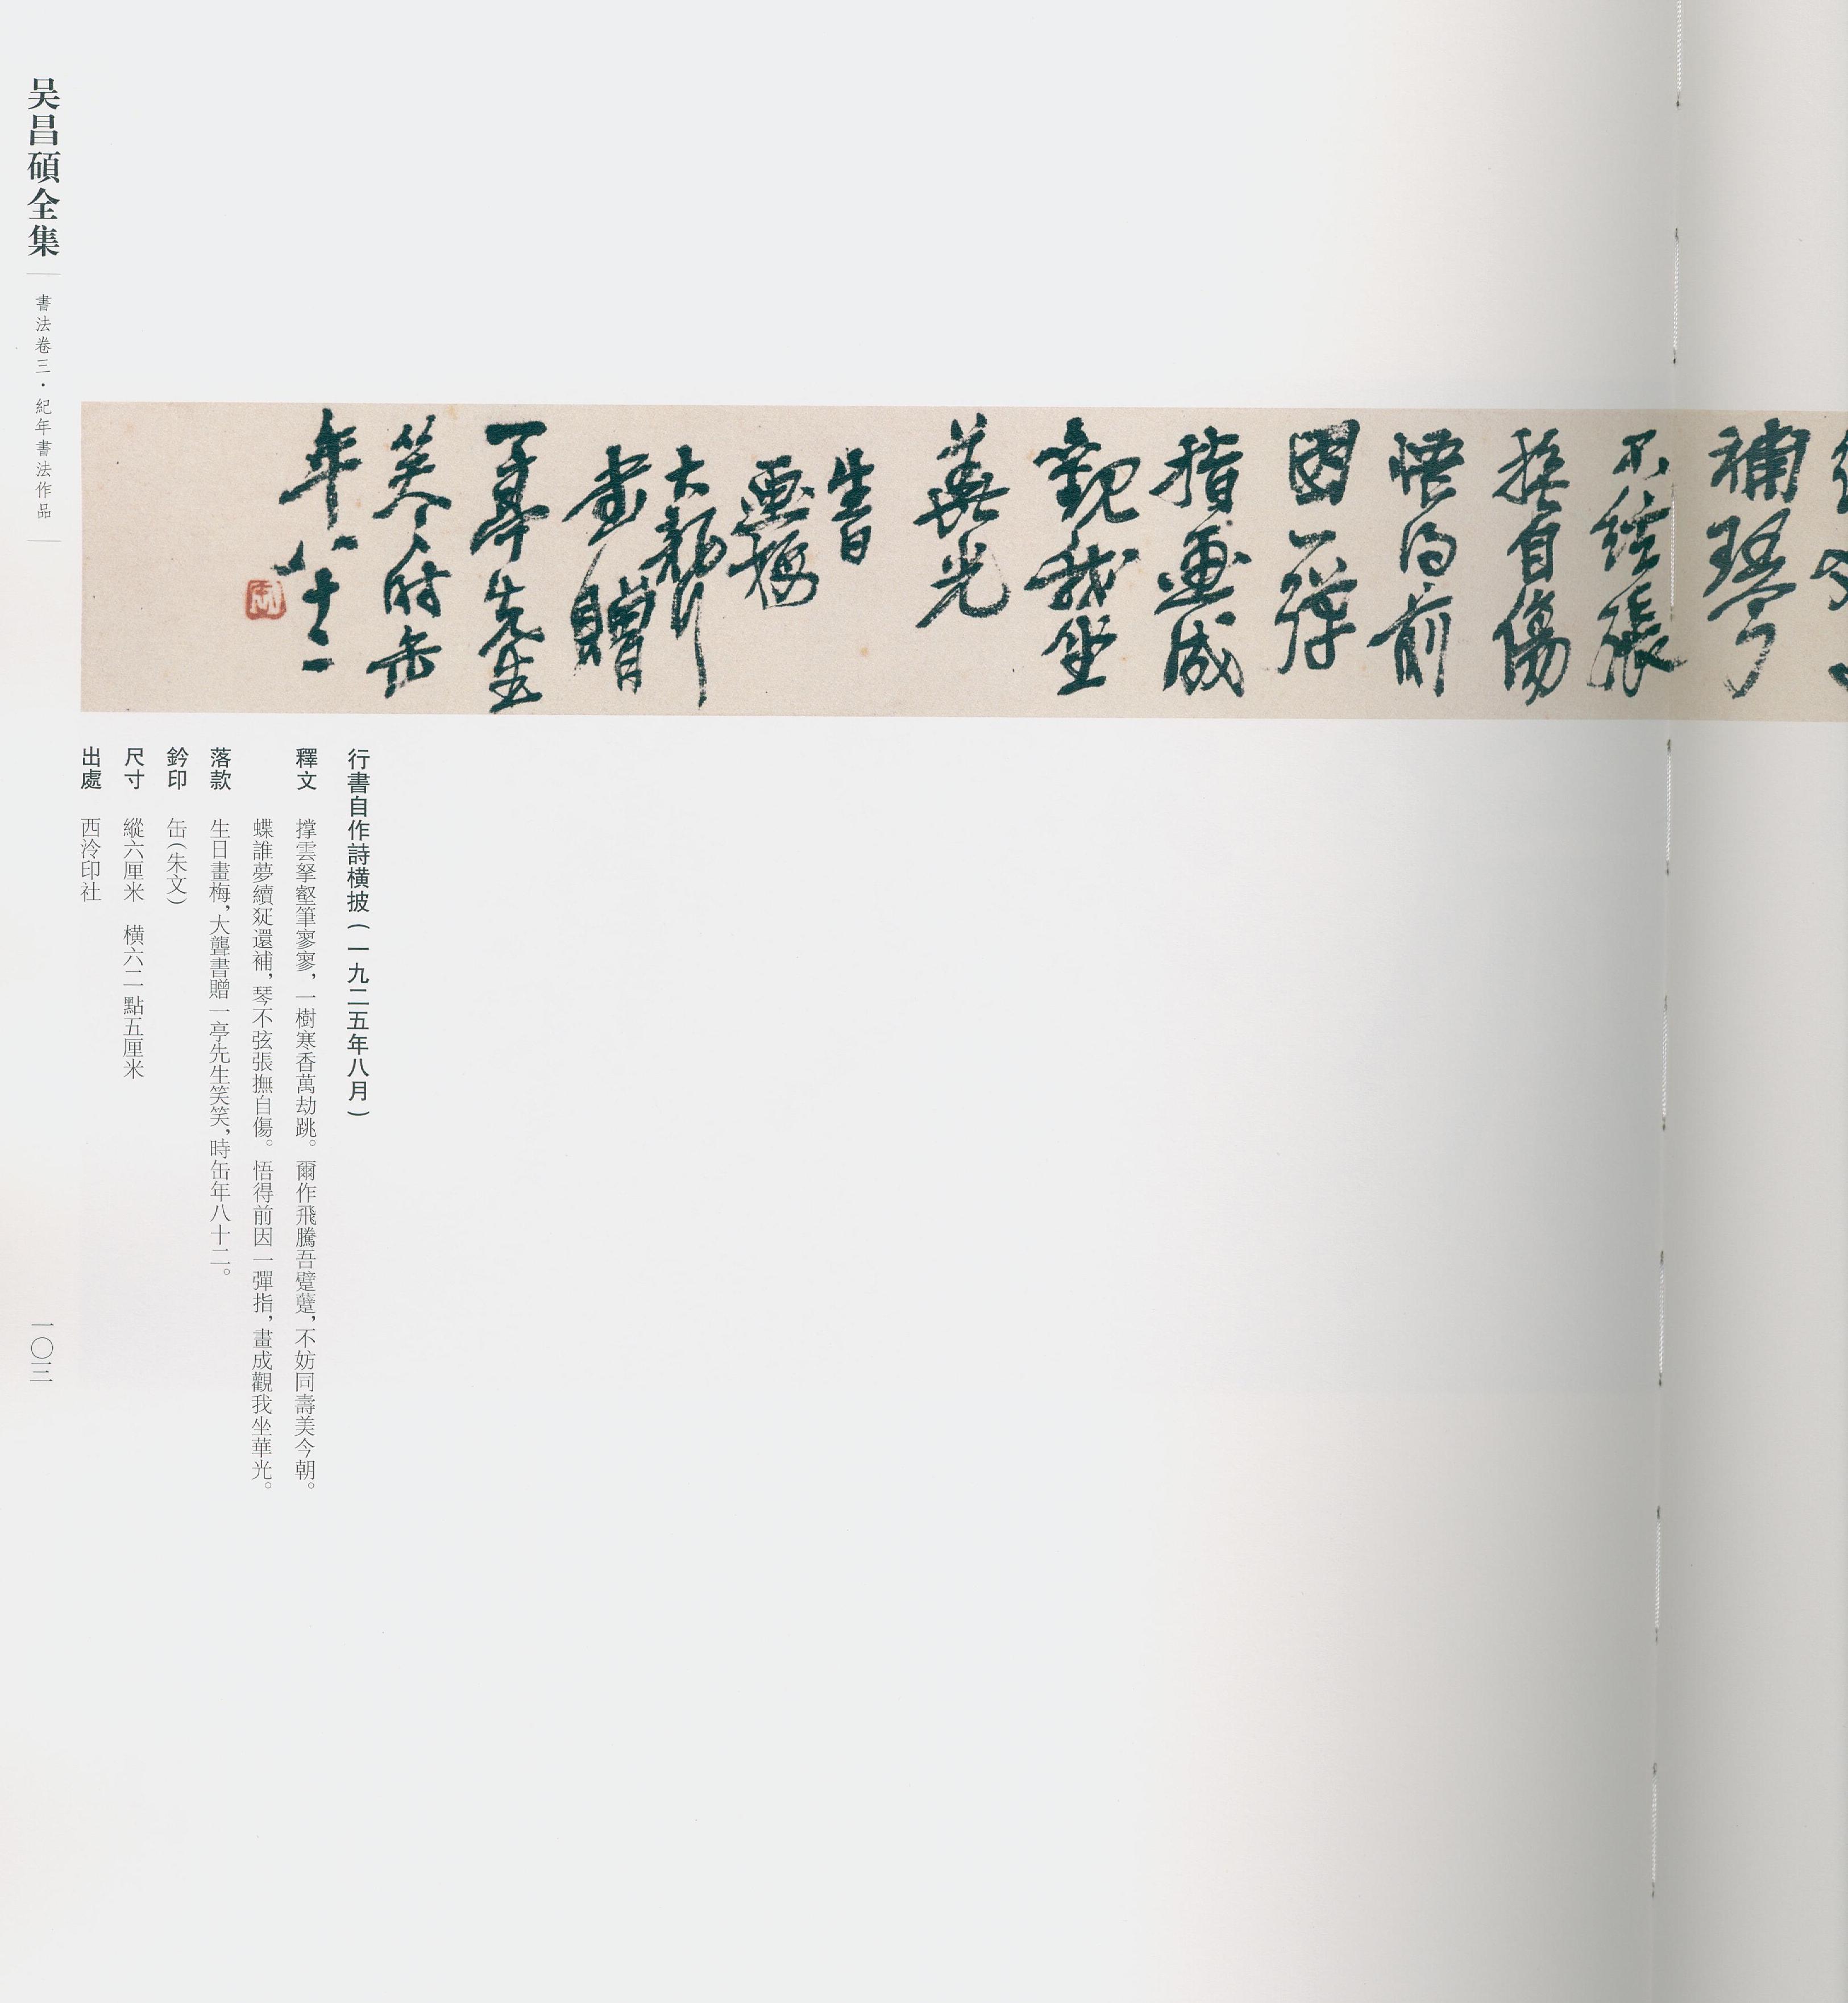 補琴
不絃張
撫自傷
悟得前
因一彈
指畫成
觀我坐
華光
生日
畫梅
大聾
書贈
一亭先生
笑笑時缶
年八十二
缶
行書自作詩橫披（一九二五年八月）
釋文 撑雲拏壑筆寥寥，一樹寒香萬劫跳。爾作飛騰吾躄躠，不妨同壽美今朝。
蝶誰夢續㷼還補，琴不弦張撫自傷。悟得前因一彈指，畫成觀我坐華光。
落款 生日畫梅，大聾書贈一亭先生笑笑，時缶年八十二。
鈐印 缶（朱文）
尺寸 縱六厘米 橫六二點五厘米
出處 西泠印社
吴昌碩全集
書法卷三·紀年書法作品
一〇三